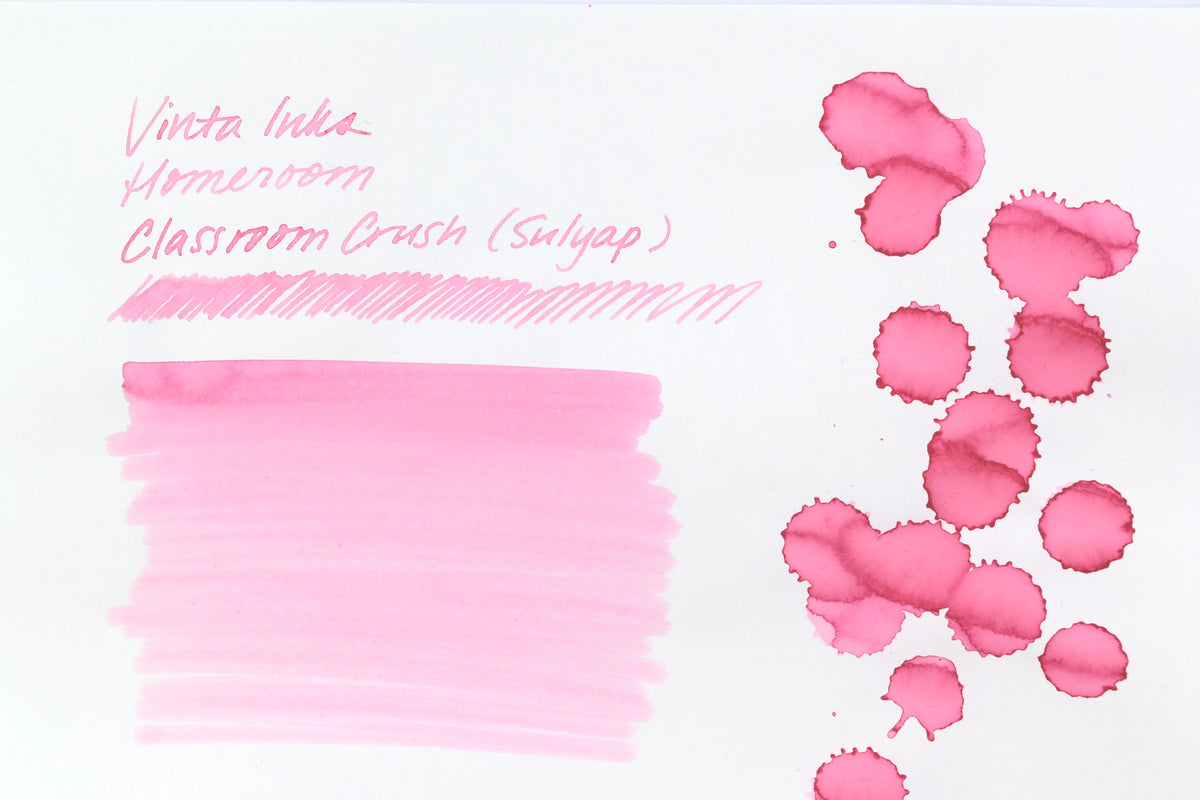 Vinta Inks
Homeroom
Classroom Crush (Sulyap)